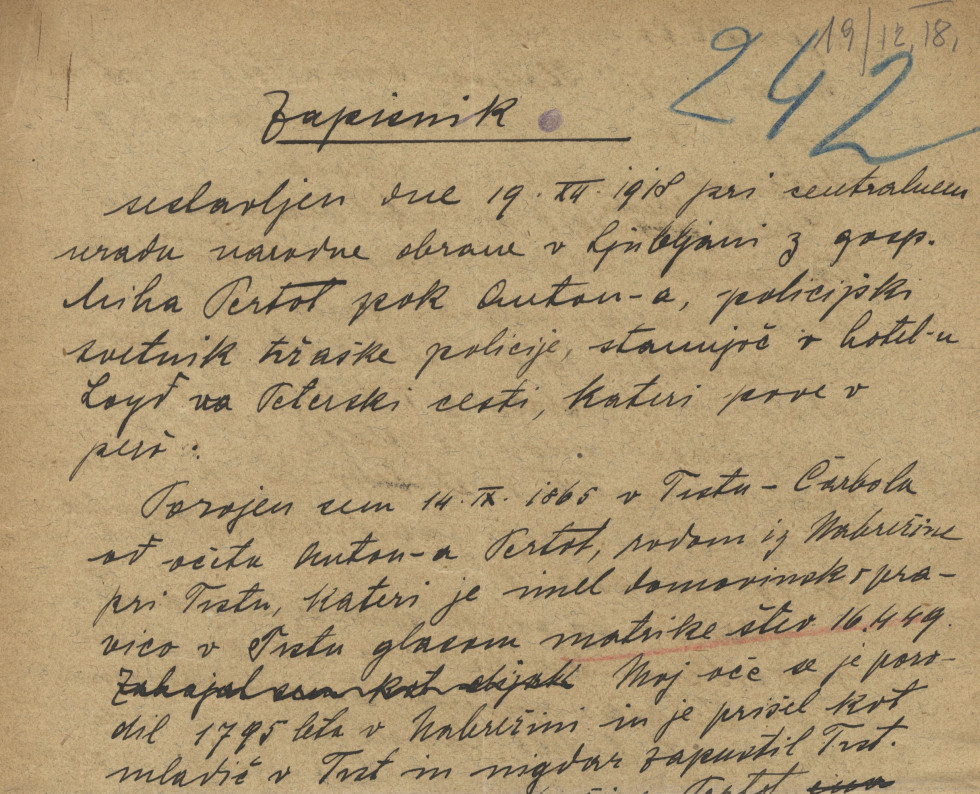 19/12.18.
242
Zapisnik
sestavljen dne 19. XII. 1918 pri centralnem
uradu narodne obrane v Ljubljani z gosp.
Miha Pertot pok Anton-a, policijski
svetnik tržaške policije, stanujoč v hotel-u
Loyd na Peterski cesti, kateri pove v
pero:
Porojen sem 14. IX. 1865 v Trstu - Čarbola
od očeta Anton-a Pertot, rodom iz Nabrežine
pri Trstu, kateri je imel domovinsko pra-
vico v Trstu glasom matrike štev 16.449.
Zahajal sem kot Moj oče se je poro-
dil 1795 leta v Nabrežini in je prišel kot
mladič v Trst in nigdar zapustil Trst.
Pertot